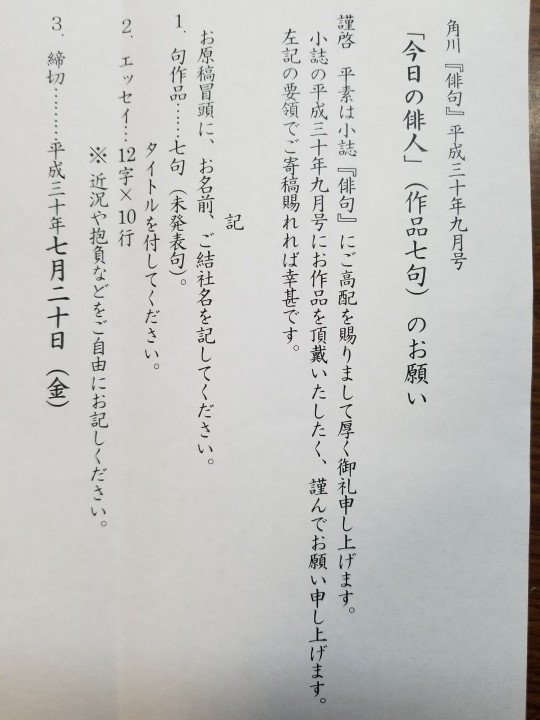 角川『俳句』平成三十年九月号
「今日の俳人」（作品七句）のお願い
謹啓　平素は小誌『俳句』にご高配を賜りまして厚く御礼申し上げます。
小誌の平成三十年九月号にお作品を頂戴いたしたく、謹んでお願い申し上げます。
左記の要領でご寄稿賜れれば幸甚です。
記
お原稿冒頭に、お名前、ご結社名を記してください。
1．句作品……七句（未発表句）。
タイトルを付してください。
2．エッセイ…12字×10行
※近況や抱負などをご自由にお記しください。
3．締切………平成三十年七月二十日（金）